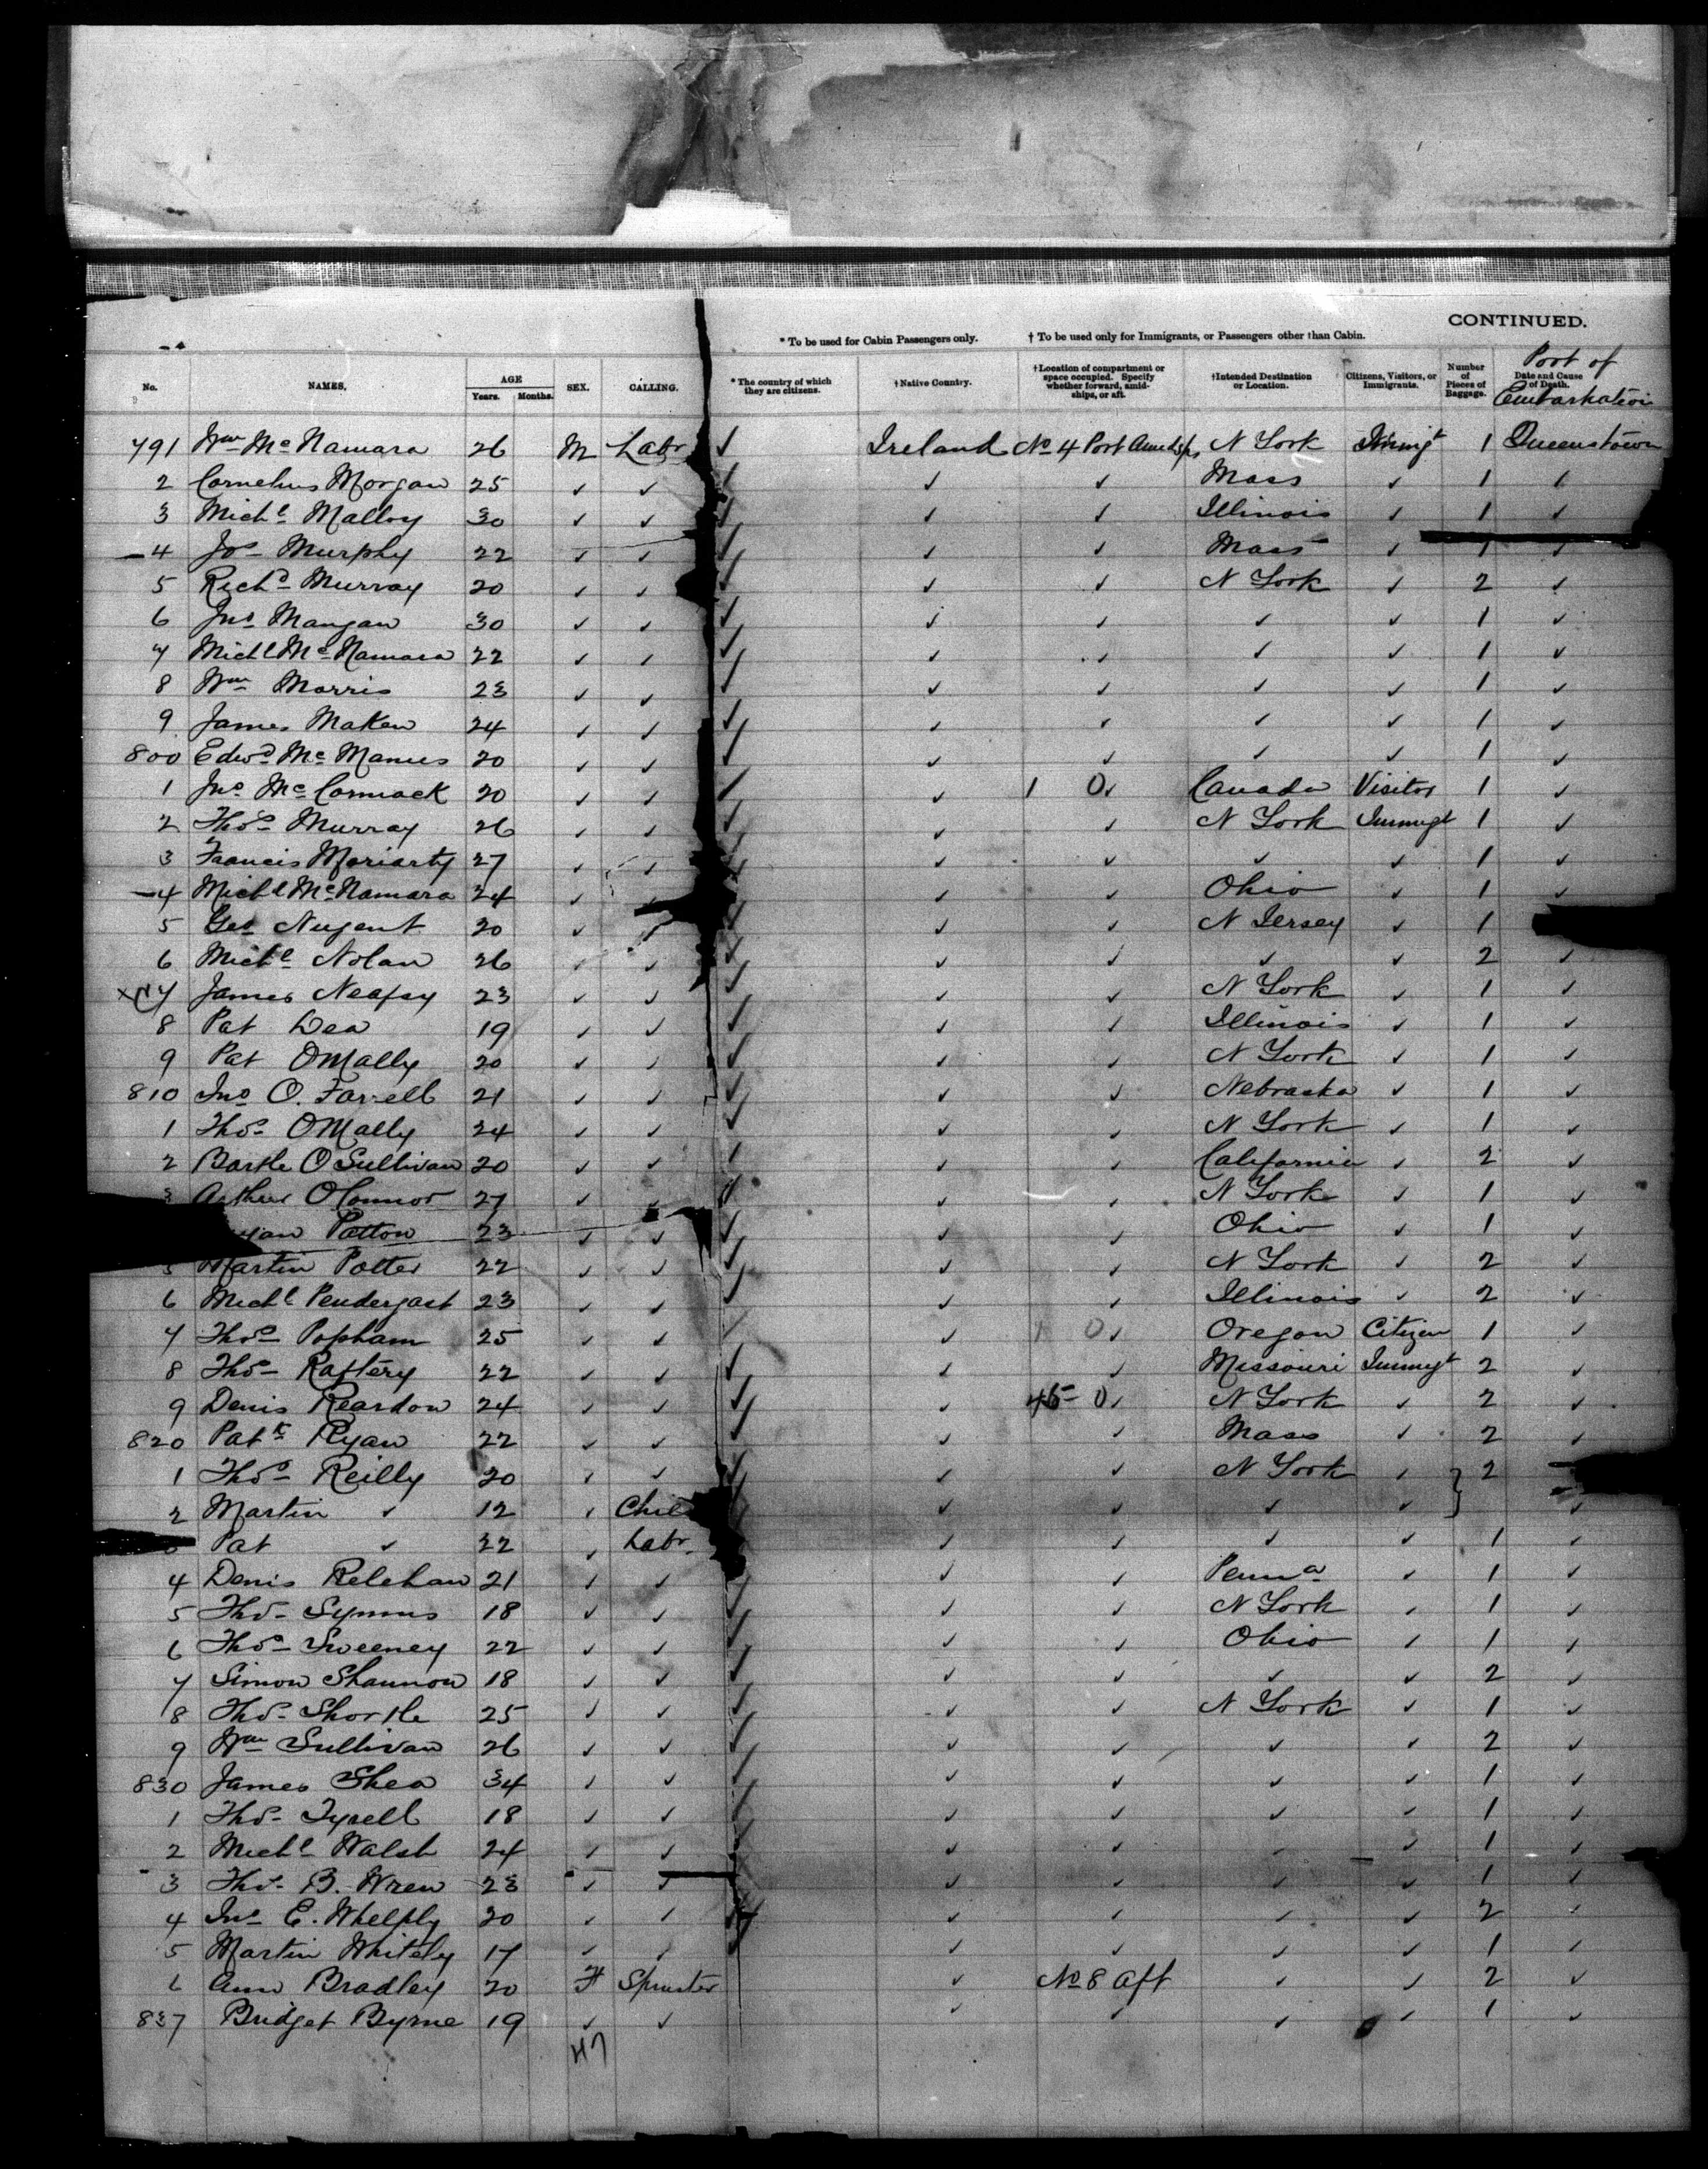 CONTINUED.
* To be used for Cabin Passengers only. † To be used only for Immigrants, or Passengers other than Cabin.
No. NAMES. AGE Years. Months. SEX. CALLING. * The country of which they are citizens. † Native Country. † Location of compartment or space occupied. Specify whether forward, amidships, or aft. † Intended Destination or Location. Citizens, Visitors, or Immigrants. Number of Pieces of Baggage. Date and Cause of Death. Port of Embarkation
791 Wm McNamara 26 M Labr ✓ Ireland No 4 Port Amidsps N York Immigt 1 Queenstown
2 Cornelius Morgan 25 ✓ ✓ ✓ ✓ ✓ Mass ✓ 1 ✓
3 Michl Malloy 30 ✓ ✓ ✓ ✓ ✓ Illinois ✓ 1 ✓
4 Jos Murphy 22 ✓ ✓ ✓ ✓ ✓ Mass ✓ 1 ✓
5 Richd Murray 20 ✓ ✓ ✓ ✓ ✓ N York ✓ 2 ✓
6 Jno Mangan 30 ✓ ✓ ✓ ✓ ✓ ✓ ✓ 1 ✓
7 Michl McNamara 22 ✓ ✓ ✓ ✓ ✓ ✓ ✓ 1 ✓
8 Wm Morris 23 ✓ ✓ ✓ ✓ ✓ ✓ ✓ 1 ✓
9 James Maken 24 ✓ ✓ ✓ ✓ ✓ ✓ ✓ 1 ✓
800 Edwd McManus 20 ✓ ✓ ✓ ✓ ✓ ✓ ✓ 1 ✓
1 Jno McCormack 20 ✓ ✓ ✓ ✓ 1 0 ✓ Canada Visitor 1 ✓
2 Thos Murray 26 ✓ ✓ ✓ ✓ ✓ N York Immigt 1 ✓
3 Francis Moriarty 27 ✓ ✓ ✓ ✓ ✓ ✓ ✓ 1 ✓
4 Michl McNamara 24 ✓ ✓ ✓ ✓ ✓ Ohio ✓ 1 ✓
5 Geo Nugent 20 ✓ ✓ ✓ ✓ ✓ N Jersey ✓ 1
6 Michl Nolan 26 ✓ ✓ ✓ ✓ ✓ ✓ ✓ 2 ✓
7 James Neafsy 23 ✓ ✓ ✓ ✓ ✓ N York ✓ 1 ✓
8 Pat Dea 19 ✓ ✓ ✓ ✓ ✓ Illinois ✓ 1 ✓
9 Pat OMally 20 ✓ ✓ ✓ ✓ ✓ N York ✓ 1 ✓
810 Jno O. Farrell 21 ✓ ✓ ✓ ✓ ✓ Nebraska ✓ 1 ✓
1 Thos OMally 24 ✓ ✓ ✓ ✓ ✓ N York ✓ 1 ✓
2 Bartle O Sullivan 20 ✓ ✓ ✓ ✓ ✓ California ✓ 2 ✓
3 Arthur OConnor 27 ✓ ✓ ✓ ✓ ✓ N York ✓ 1 ✓
Patton 23 ✓ ✓ ✓ ✓ ✓ Ohio ✓ 1 ✓
5 Martin Potter 22 ✓ ✓ ✓ ✓ ✓ N York ✓ 2 ✓
6 Michl Pendergast 23 ✓ ✓ ✓ ✓ ✓ Illinois ✓ 2 ✓
7 Thos Popham 25 ✓ ✓ ✓ ✓ 1 0 ✓ Oregon Citizen 1 ✓
8 Thos Raftery 22 ✓ ✓ ✓ ✓ ✓ Missouri Immigt 2 ✓
9 Denis Reardon 24 ✓ ✓ ✓ ✓ 45 0 ✓ N York ✓ 2 ✓
820 Patk Ryan 22 ✓ ✓ ✓ ✓ ✓ Mass ✓ 2 ✓
1 Thos Reilly 20 ✓ ✓ ✓ ✓ ✓ N York ✓ } 2
2 Martin ✓ 12 ✓ Chil ✓ ✓ ✓ ✓ ✓ ✓
Pat ✓ 22 ✓ Labr. ✓ ✓ ✓ ✓ 1 ✓
4 Denis Relehan 21 ✓ ✓ ✓ ✓ ✓ Penna ✓ 1 ✓
5 Thos Symms 18 ✓ ✓ ✓ ✓ ✓ N York ✓ 1 ✓
6 Thos Sweeney 22 ✓ ✓ ✓ ✓ ✓ Ohio ✓ 1 ✓
7 Simon Shannon 18 ✓ ✓ ✓ ✓ ✓ ✓ ✓ 2 ✓
8 Thos Shortle 25 ✓ ✓ ✓ ✓ ✓ N York ✓ 1 ✓
9 Wm Sullivan 26 ✓ ✓ ✓ ✓ ✓ ✓ ✓ 2 ✓
830 James Shea 34 ✓ ✓ ✓ ✓ ✓ ✓ ✓ 1 ✓
1 Thos Tyrell 18 ✓ ✓ ✓ ✓ ✓ ✓ ✓ 1 ✓
2 Michl Walsh 24 ✓ ✓ ✓ ✓ ✓ ✓ ✓ 1 ✓
3 Thos B. Wren 23 ✓ ✓ ✓ ✓ ✓ ✓ ✓ 1 ✓
4 Jno E. Whelply 20 ✓ ✓ ✓ ✓ ✓ ✓ ✓ 2 ✓
5 Martin Whitely 17 ✓ ✓ ✓ ✓ ✓ ✓ ✓ 1 ✓
6 Ann Bradley 20 F Spinster ✓ No 8 Aft ✓ ✓ 2 ✓
837 Bridget Byrne 19 ✓ ✓ ✓ ✓ ✓ ✓ 1 ✓
47